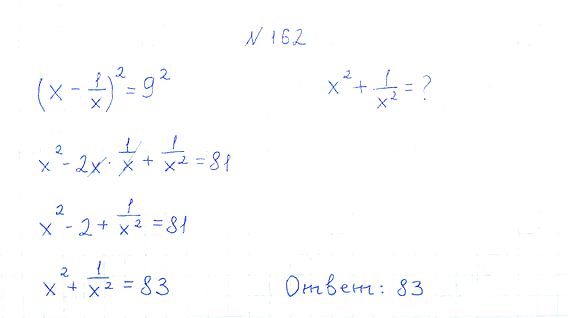 № 162
(x - 1/x)² = 9²
x² + 1/x² = ?
x² - 2x · 1/x + 1/x² = 81
x² - 2 + 1/x² = 81
x² + 1/x² = 83
Ответ: 83